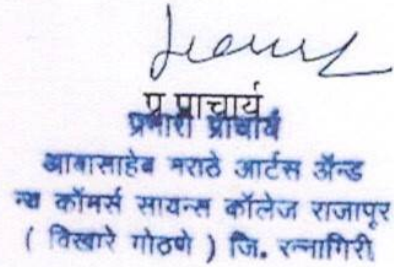 प्र प्राचार्य
प्रभारी प्राचार्य
आबासाहेब मराठे आर्टस ॲन्ड
न्यु कॉमर्स सायन्स कॉलेज राजापूर
( विखारे गोठणे ) जि. रत्नागिरी